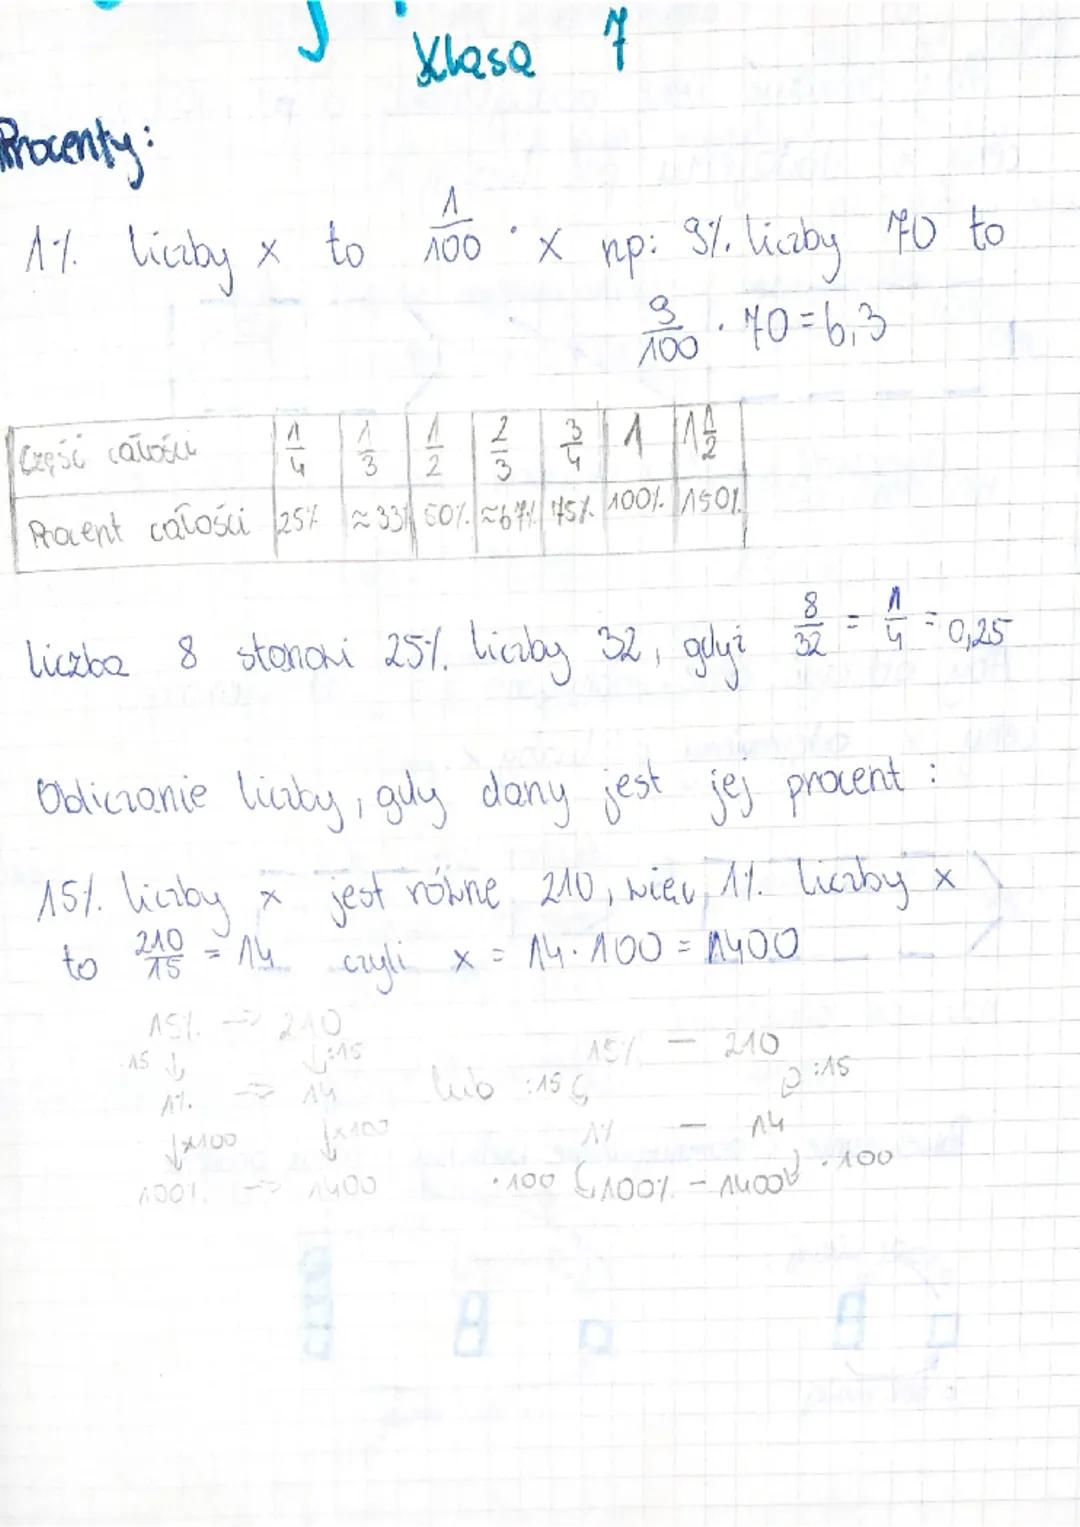 Klasa 7
Procenty:
1% liczby x to 1/100 · x np: 9% liczby 70 to
9/100 · 70 = 6,3
Część całości 1/4 1/3 1/2 2/3 3/4 1 1 1/2
Procent całości 25% ≈33% 50% ≈67% 75% 100% 150%
liczba 8 stanowi 25% liczby 32, gdyż 8/32 = 1/4 = 0,25
Obliczanie liczby, gdy dany jest jej procent:
15% liczby x jest równe 210, więc 1% liczby x
to 210/15 = 14 czyli x = 14 · 100 = 1400
15% → 210 15% — 210
:15 ↓ ↓:15 :15 :15
1% → 14 lub 1% — 14
↓x100 ↓x100 ·100 ·100
100% → 1400 100% — 1400